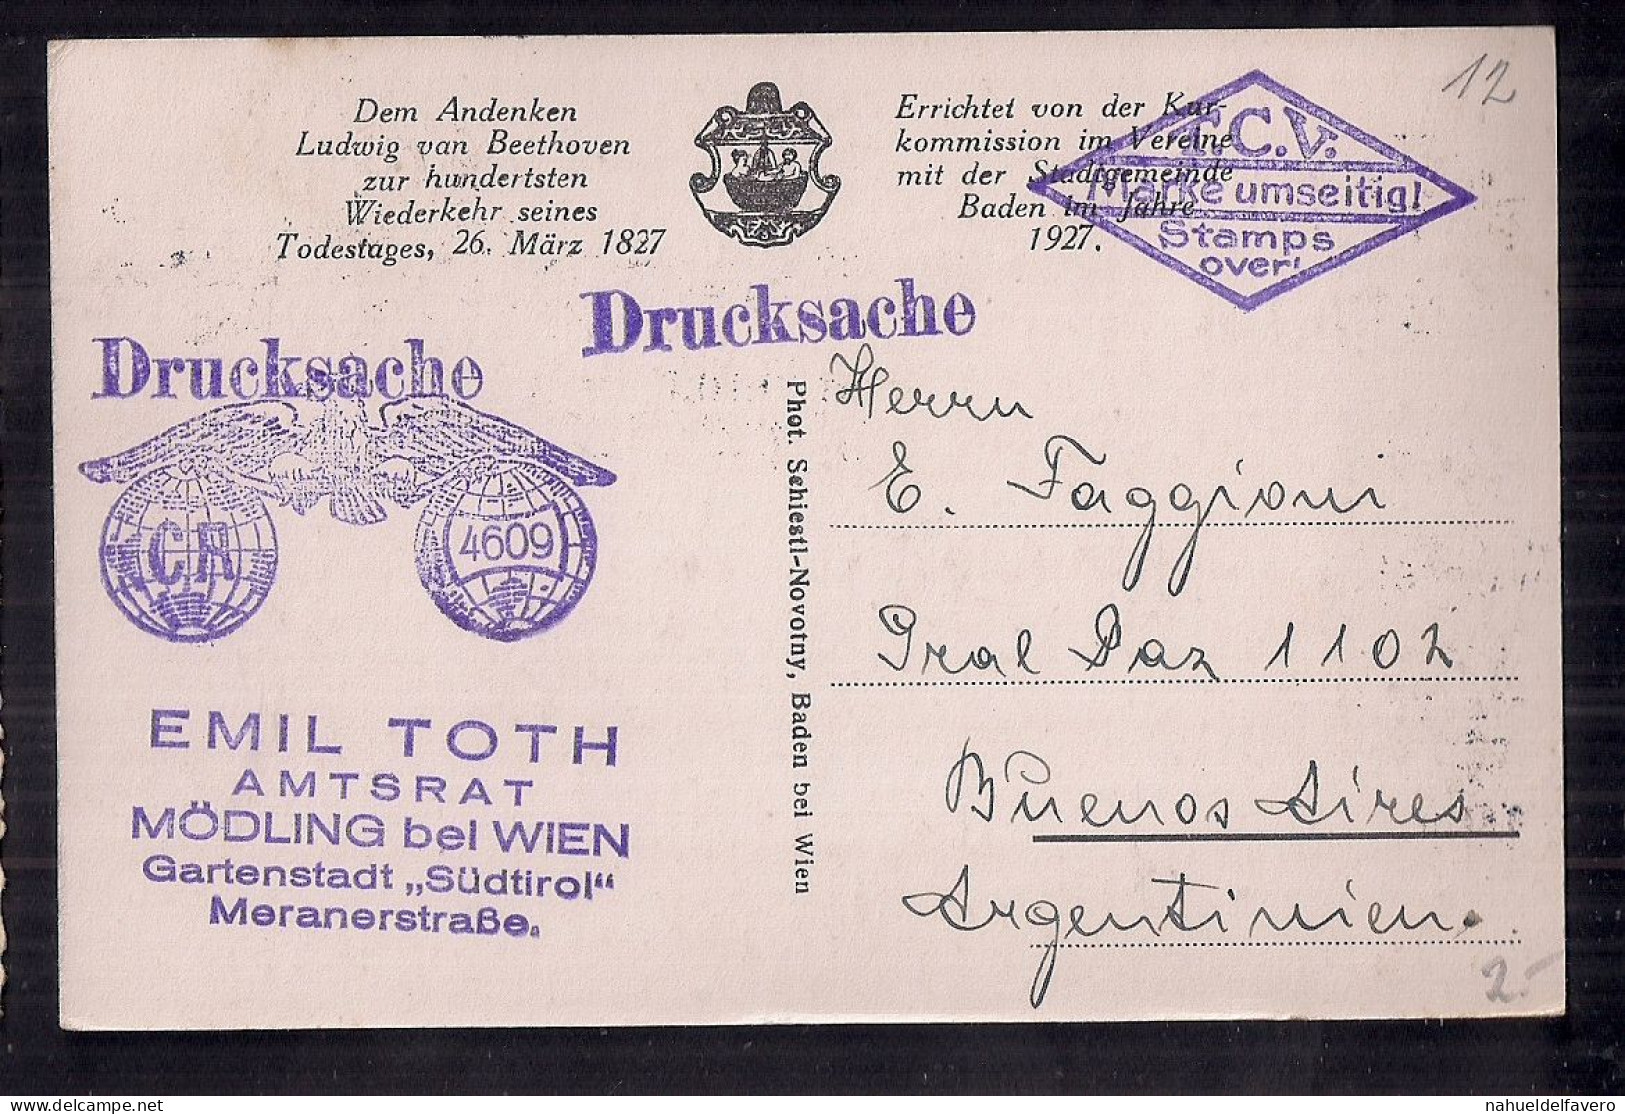 Dem Andenken
Ludwig van Beethoven
zur hundertsten
Wiederkehr seines
Todestages, 26. März 1827
Errichtet von der Kur-
kommission im Vereine
mit der Stadtgemeinde
Baden im Jahre
1927.
T.C.V.
Marke umseitig!
Stamps
over!
12
Drucksache
Drucksache
CR
4609
EMIL TOTH
AMTSRAT
MÖDLING bei WIEN
Gartenstadt „Südtirol“
Meranerstraße.
Phot. Schiestl-Novotny, Baden bei Wien
Herrn
E. Faggioni
Gral Paz 1102
Buenos Aires
Argentinien.
2.-
delcampe.net
nahueldelfavero